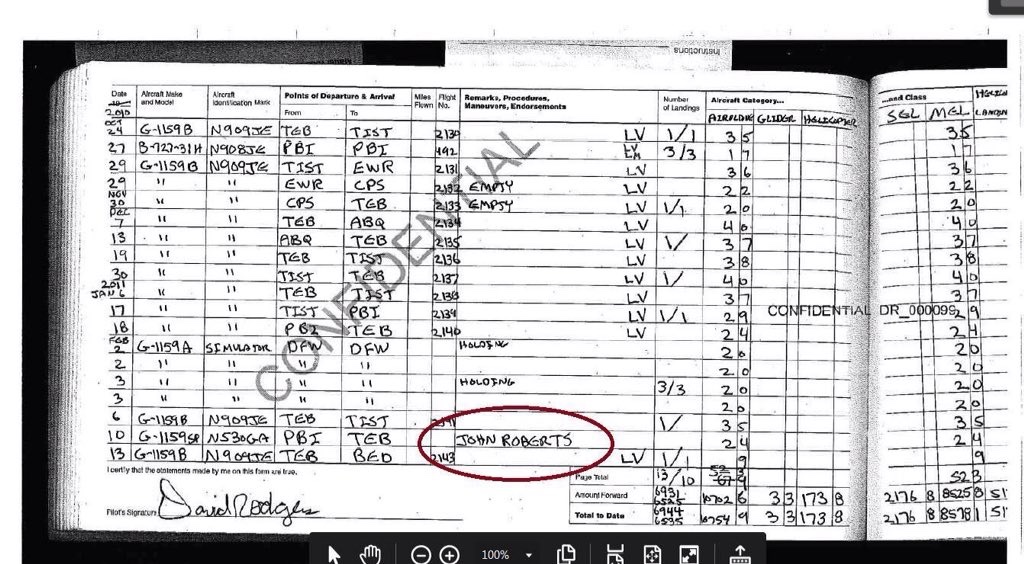 Instructions
Date 2010
Aircraft Make and Model
Aircraft Identification Mark
Points of Departure & Arrival
From
To
Miles Flown
Flight No.
Remarks, Procedures, Maneuvers, Endorsements
Number of Landings
Aircraft Category...
AIRPLANE GLIDER HELICOPTER
...and Class
SEL MEL
OCT 24 G-1159B N909JE TEB TIST 2130 LV 1/1 3 5 3 5
27 B-727-31H N908JE PBI PBI 492 LV LM 3/3 1 7 1 7
29 G-1159B N909JE TIST EWR 2131 LV 3 6 3 6
29 " " EWR CPS 2132 EMPTY LV 2 2 2 2
NOV 30 " " CPS TEB 2133 EMPTY LV 1/1 2 0 2 0
DEC 7 " " TEB ABQ 2134 LV 4 0 4 0
13 " " ABQ TEB 2135 LV 1/ 3 7 3 7
19 " " TEB TIST 2136 LV 3 8 3 8
30 " " TIST TEB 2137 LV 1/ 4 0 4 0
2011 JAN 6 " " TEB TIST 2138 LV 3 7 3 7
17 " " TIST PBI 2139 LV 1/1 2 9 2 9
CONFIDENTIAL DR_000099
18 " " PBI TEB 2140 LV 2 4 2 4
FEB 2 G-1159A SIMULATOR DFW DFW HOLDING 2 0 2 0
2 " " " " 2 0 2 0
3 " " " " HOLDING 3/3 2 0 2 0
3 " " " " 2 0 2 0
6 G-1159B N909JE TEB TIST 1/ 3 5 3 5
10 G-1159SP N530GA PBI TEB JOHN ROBERTS 2 4 2 4
13 G-1159B N909JE TEB BED 2143 LV 1/1 9 9
I certify that the statements made by me on this form are true.
Page Total 13/10 52 3
Amount Forward 6931 6525 10702 6 3 3 173 8 2176 8 8525 8 51
Total to Date 6944 6535 10754 9 3 3 173 8 2176 8 8578 1 51
Pilot's Signature David Rodgers
CONFIDENTIAL
100%